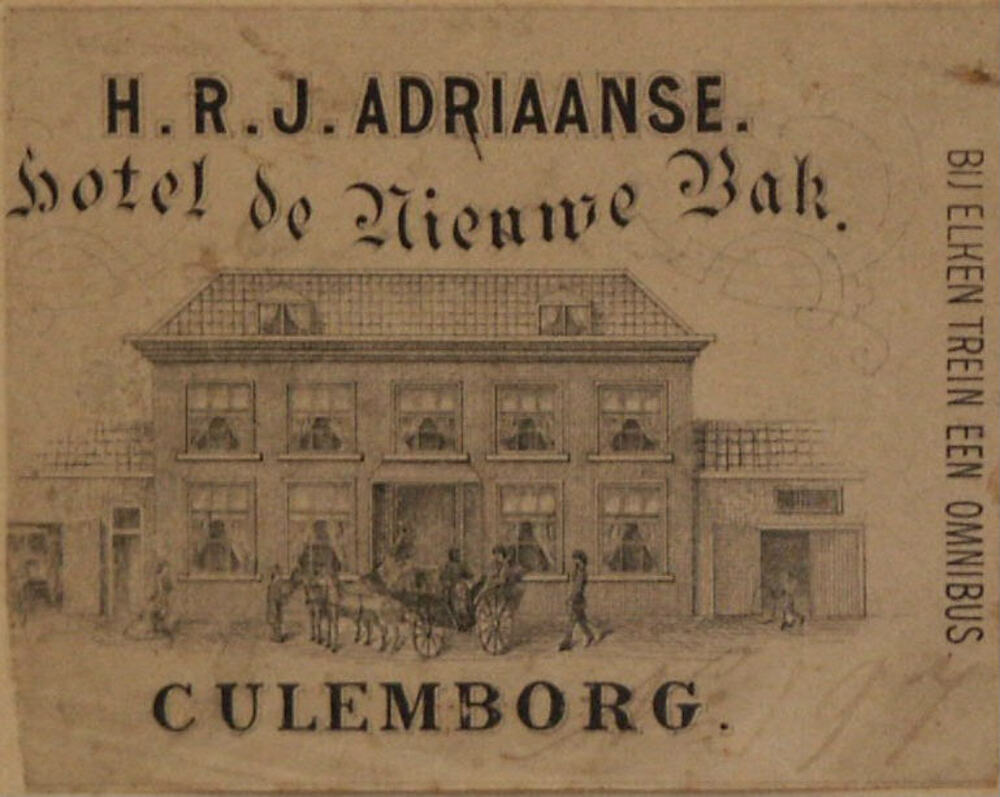 H.R.J. ADRIAANSE.
Hotel de Nieuwe Bak.
CULEMBORG.
BIJ ELKEN TREIN EEN OMNIBUS.